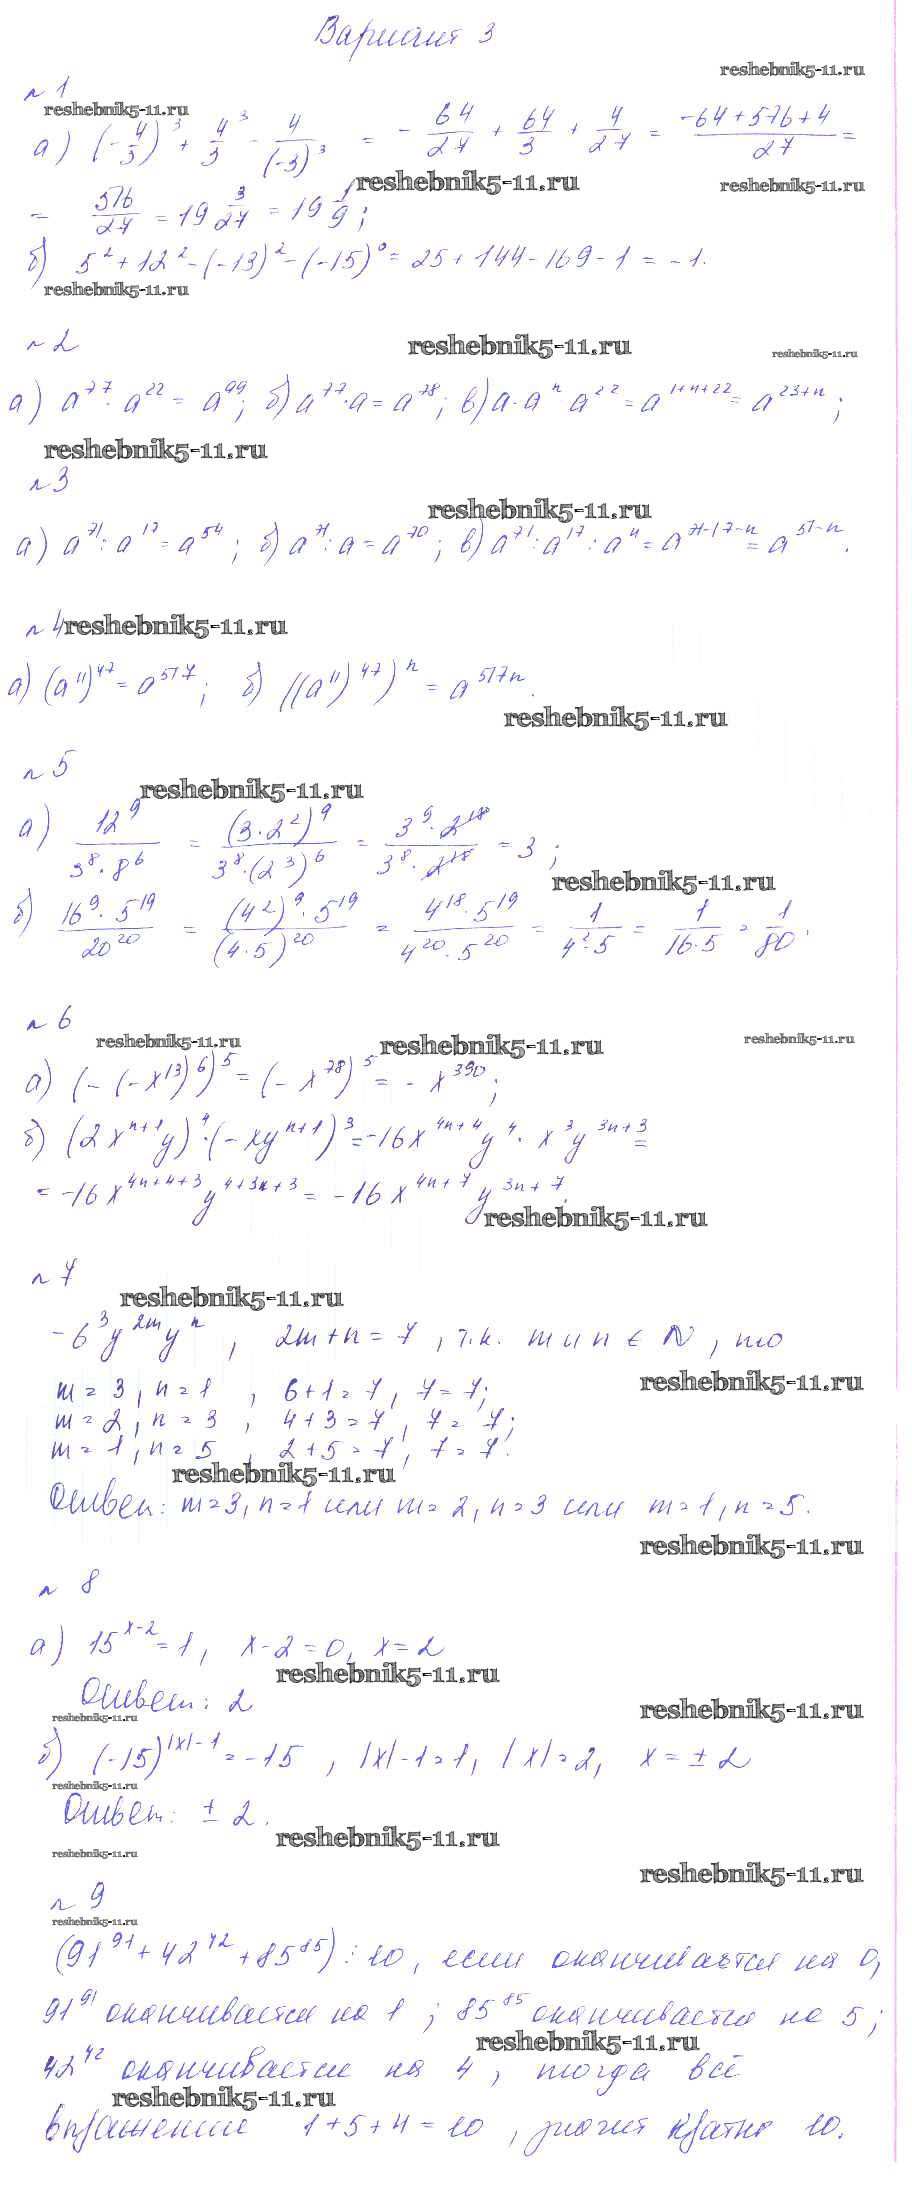 Вариант 3
reshebnik5-11.ru
№1
reshebnik5-11.ru
а) (-4/3)^3 + 4^3/3 - 4/(-3)^3 = -64/27 + 64/3 + 4/27 = (-64+576+4)/27 =
reshebnik5-11.ru reshebnik5-11.ru
= 516/27 = 19 3/27 = 19 1/9;
б) 5^2 + 12^2 - (-13)^2 - (-15)^0 = 25 + 144 - 169 - 1 = -1.
reshebnik5-11.ru
№2 reshebnik5-11.ru reshebnik5-11.ru
а) a^77 · a^22 = a^99; б) a^77 · a = a^78; в) a · a^n a^22 = a^(1+n+22) = a^(23+n);
reshebnik5-11.ru
№3
reshebnik5-11.ru
а) a^71 : a^17 = a^54; б) a^71 : a = a^70; в) a^71 : a^17 : a^n = a^(71-17-n) = a^(51-n).
№4 reshebnik5-11.ru
а) (a^11)^47 = a^517; б) ((a^11)^47)^n = a^517n.
reshebnik5-11.ru
№5
reshebnik5-11.ru
а) 12^9/(3^8 · 8^6) = (3·2^2)^9/(3^8·(2^3)^6) = (3^9 · 2^18)/(3^8 · 2^18) = 3;
reshebnik5-11.ru
б) (16^9 · 5^19)/20^20 = ((4^2)^9 · 5^19)/(4·5)^20 = (4^18 · 5^19)/(4^20 · 5^20) = 1/(4^2·5) = 1/(16·5) = 1/80.
№6
reshebnik5-11.ru reshebnik5-11.ru reshebnik5-11.ru
а) (-(-x^13)^6)^5 = (-x^78)^5 = -x^390;
б) (2x^(n+1)y)^4 · (-xy^(n+1))^3 = -16x^(4n+4)y^4 · x^3y^(3n+3) =
= -16x^(4n+4+3)y^(4+3n+3) = -16x^(4n+7)y^(3n+7).
reshebnik5-11.ru
№7
reshebnik5-11.ru
-6^3y^(2m)y^n, 2m+n=7, т.к. m и n ∈ N, то
reshebnik5-11.ru
m=3, n=1, 6+1=7, 7=7;
m=2, n=3, 4+3=7, 7=7;
m=1, n=5, 2+5=7, 7=7.
reshebnik5-11.ru
Ответ: m=3, n=1 или m=2, n=3 или m=1, n=5.
reshebnik5-11.ru
№8
а) 15^(x-2) = 1, x-2=0, x=2
reshebnik5-11.ru
Ответ: 2
reshebnik5-11.ru reshebnik5-11.ru
б) (-15)^(|x|-1) = -15, |x|-1=1, |x|=2, x=±2
reshebnik5-11.ru
Ответ: ±2.
reshebnik5-11.ru
reshebnik5-11.ru
reshebnik5-11.ru
№9
reshebnik5-11.ru
(91^91 + 42^42 + 85^85) ⋮ 10, если оканчивается на 0,
91^91 оканчивается на 1; 85^85 оканчивается на 5;
reshebnik5-11.ru
42^42 оканчивается на 4, тогда всё
reshebnik5-11.ru
выражение 1+5+4=10, значит кратно 10.